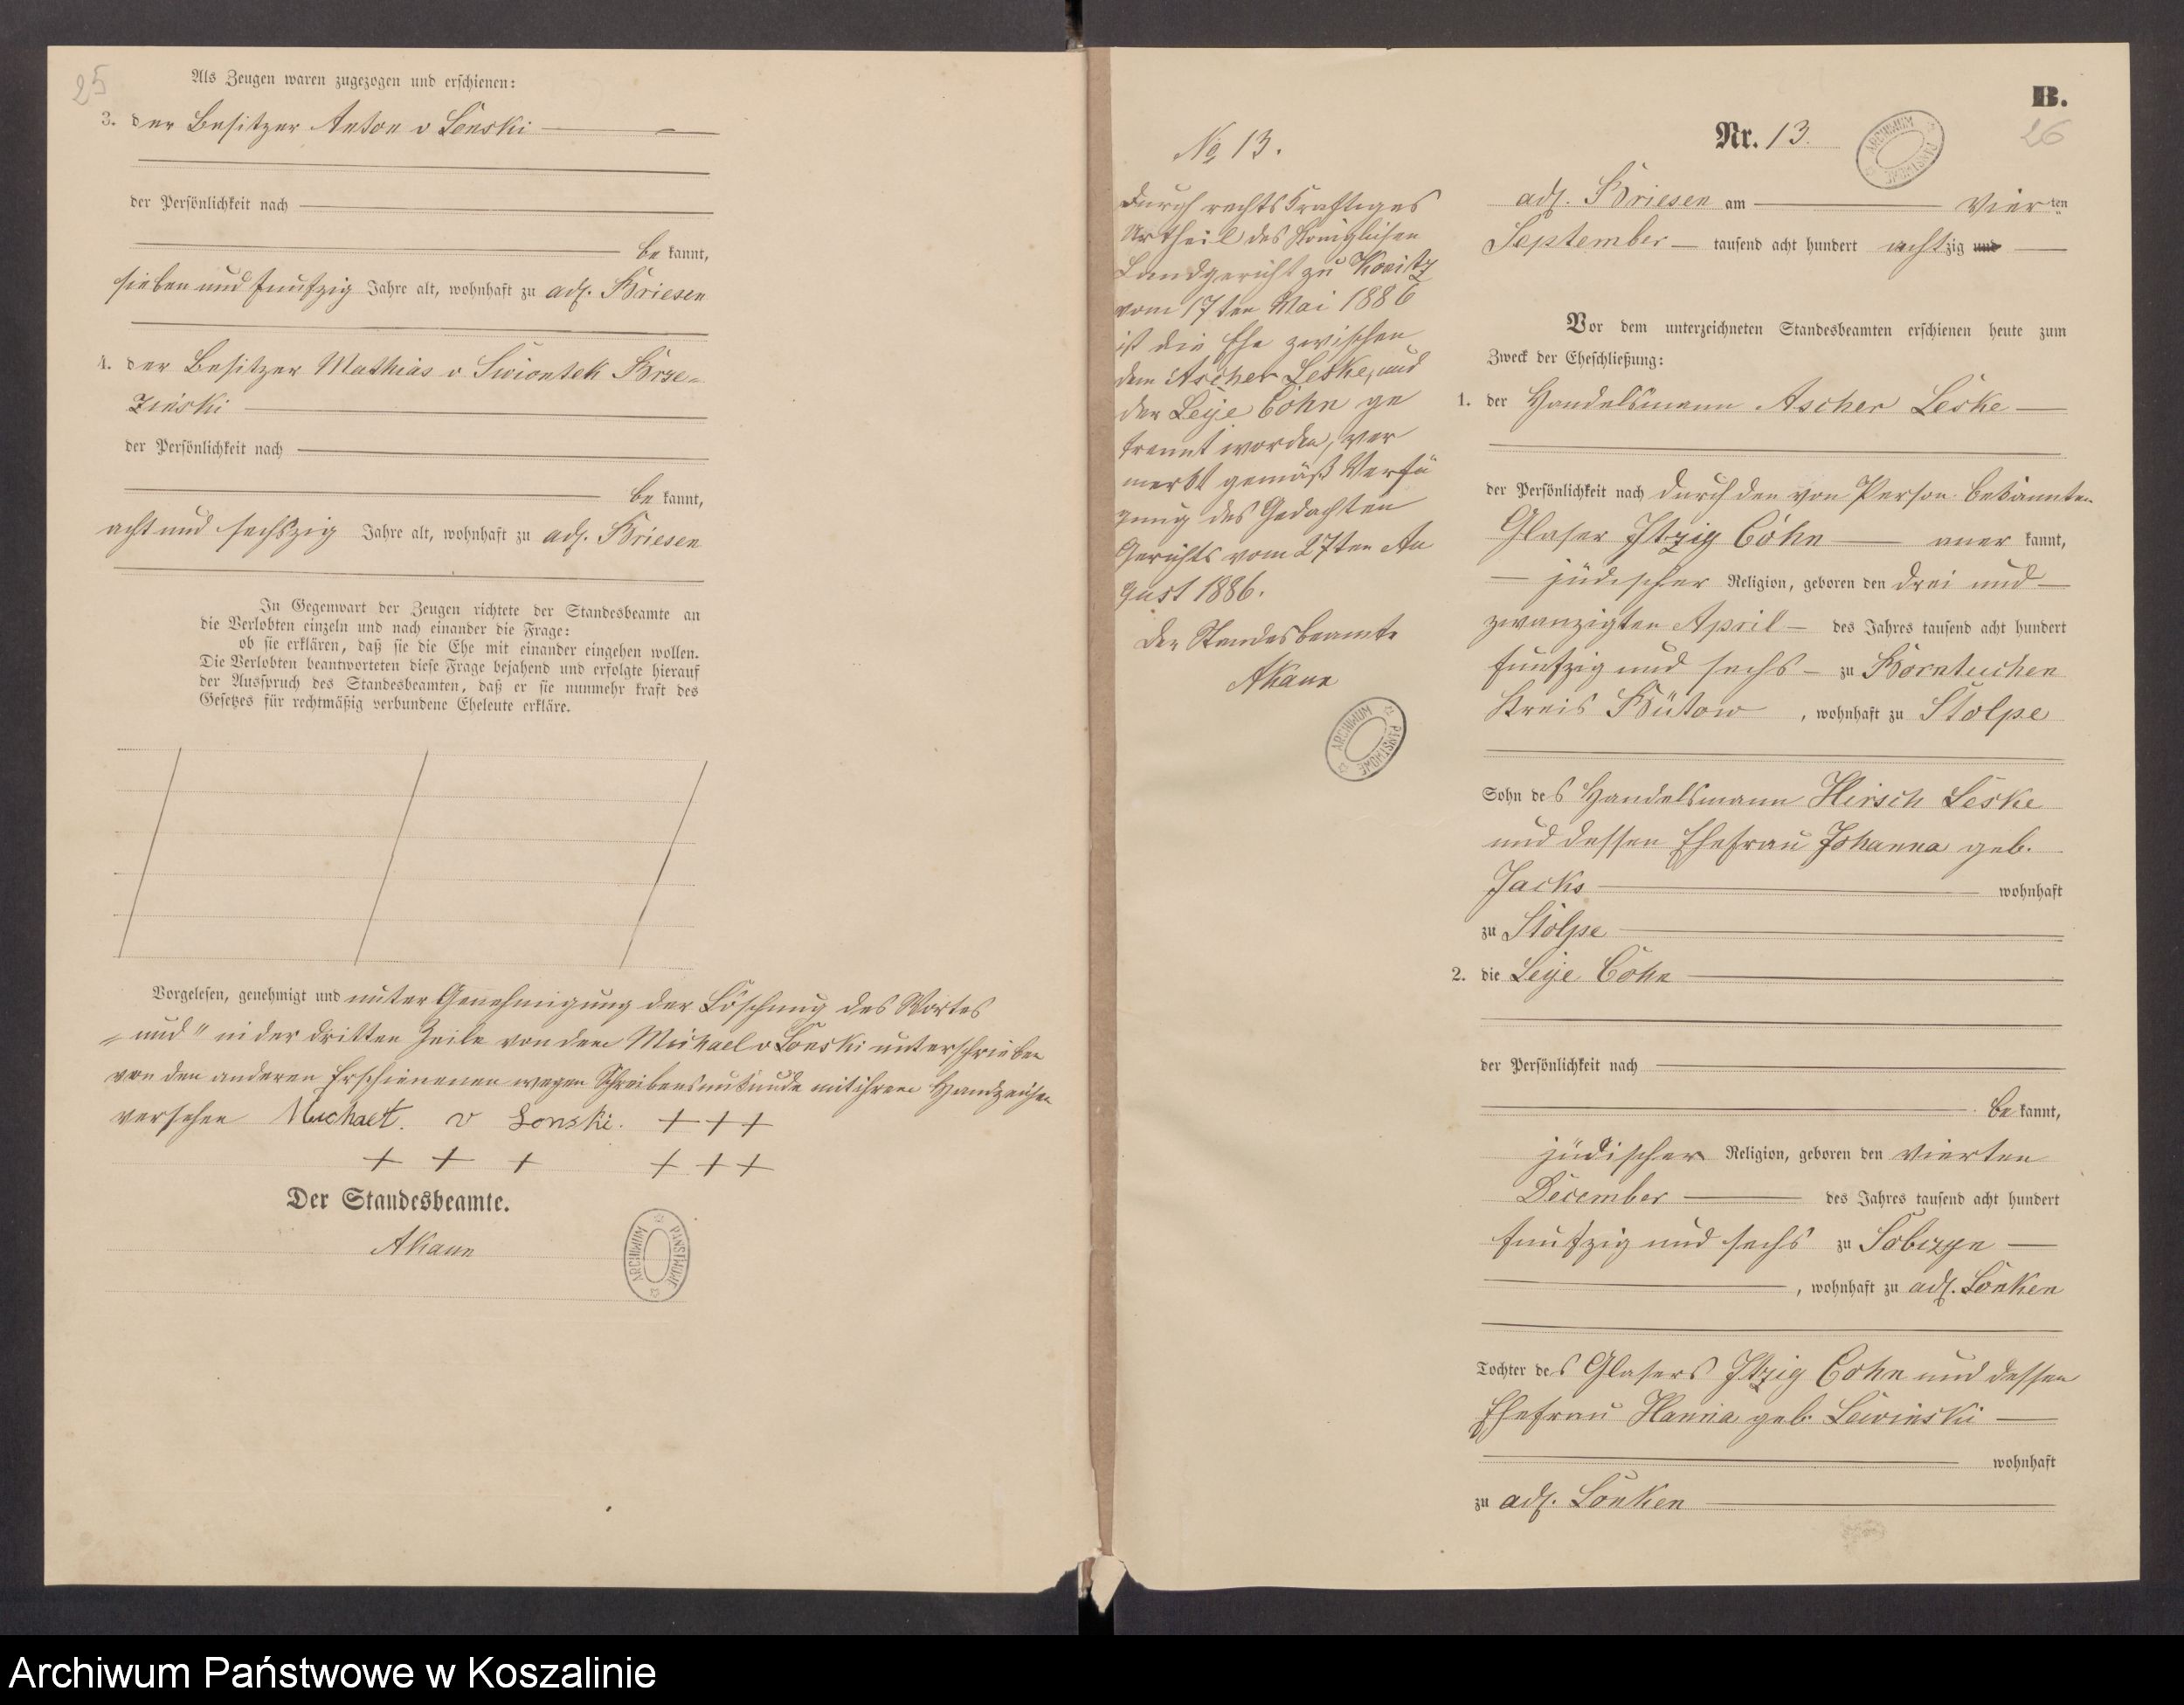 25
Als Zeugen waren zugezogen und erschienen:
3. der Besitzer Anton v Lonski
der Persönlichkeit nach
be kannt,
sieben und funfzig Jahre alt, wohnhaft zu adl. Briesen
4. der Besitzer Mathias v Swiontek Brze-
zinski
der Persönlichkeit nach
be kannt,
acht und sechszig Jahre alt, wohnhaft zu adl. Briesen
In Gegenwart der Zeugen richtete der Standesbeamte an
die Verlobten einzeln und nach einander die Frage:
ob sie erklären, daß sie die Ehe mit einander eingehen wollen.
Die Verlobten beantworteten diese Frage bejahend und erfolgte hierauf
der Ausspruch des Standesbeamten, daß er sie nunmehr kraft des
Gesetzes für rechtmäßig verbundene Eheleute erkläre.
Vorgelesen, genehmigt und unter Genehmigung der Löschung des Wortes
„und" in der dritten Zeile von dem Michael v Lonski unterschrieben
von den anderen Erschienenen wegen Schreibensunkunde mit ihrem Handzeichen
versehen Michael v Lonski. + + +
+ + + + + +
Der Standesbeamte.
AKaun
ARCHIWUM PAŃSTWOWE
No 13.
Durch rechtskraftiges
Urtheil des Königlichen
Landgericht zu Konitz
vom 17ten Mai 1886
ist die Ehe zwischen
dem Ascher Leske, und
der Leije Cohn ge
trennt worden, ver
merkt gemäß Verfü
gung des Gedachten
Gerichts vom 27ten Au
gust 1886.
Der Standesbeamte
AKaun
ARCHIWUM PAŃSTWOWE
B.
26
Nr. 13.
ARCHIWUM PAŃSTWOWE
adl. Briesen am vier ten
September tausend acht hundert achtzig und
Vor dem unterzeichneten Standesbeamten erschienen heute zum
Zweck der Eheschließung:
1. der Handelsmann Ascher Leske
der Persönlichkeit nach durch den von Person bekannten
Glaser Itzig Cohn aner kannt,
jüdischer Religion, geboren den drei und
zwanzigten April des Jahres tausend acht hundert
funfzig und sechs zu Borntuchen
Kreis Bütow, wohnhaft zu Stolpe
Sohn des Handelsmann Hirsch Leske
und dessen Ehefrau Johanna geb.
Jacks wohnhaft
zu Stolpe
2. die Leije Cohn
der Persönlichkeit nach
be kannt,
jüdischer Religion, geboren den vierten
December des Jahres tausend acht hundert
funfzig und sechs zu
, wohnhaft zu adl. Lonken
Tochter des Glasers Itzig Cohn und dessen
Ehefrau Hanna geb. Lewinski
wohnhaft
zu adl. Lonken
Archiwum Państwowe w Koszalinie